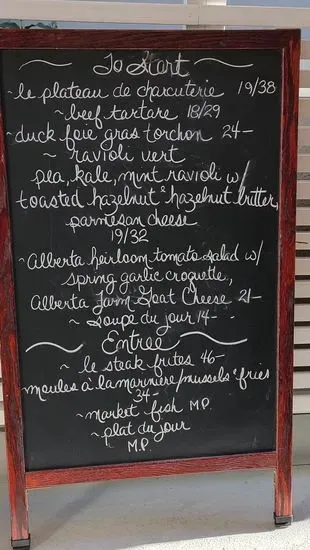 ~ To Start ~
~ le plateau de charcuterie 19/38
~ beef tartare 18/29
~ duck foie gras torchon 24-
~ ravioli vert
pea, kale, mint ravioli w/
toasted hazelnut & hazelnut butter,
parmesan cheese
19/32
~ Alberta heirloom tomato salad w/
spring garlic croquette,
Alberta Farm Goat Cheese 21-
~ soupe du jour 14-
~ Entree ~
~ le steak frites 46-
moules à la marinière/mussels & fries
34-
~ market fish M.P.
~ plat du jour
M.P.